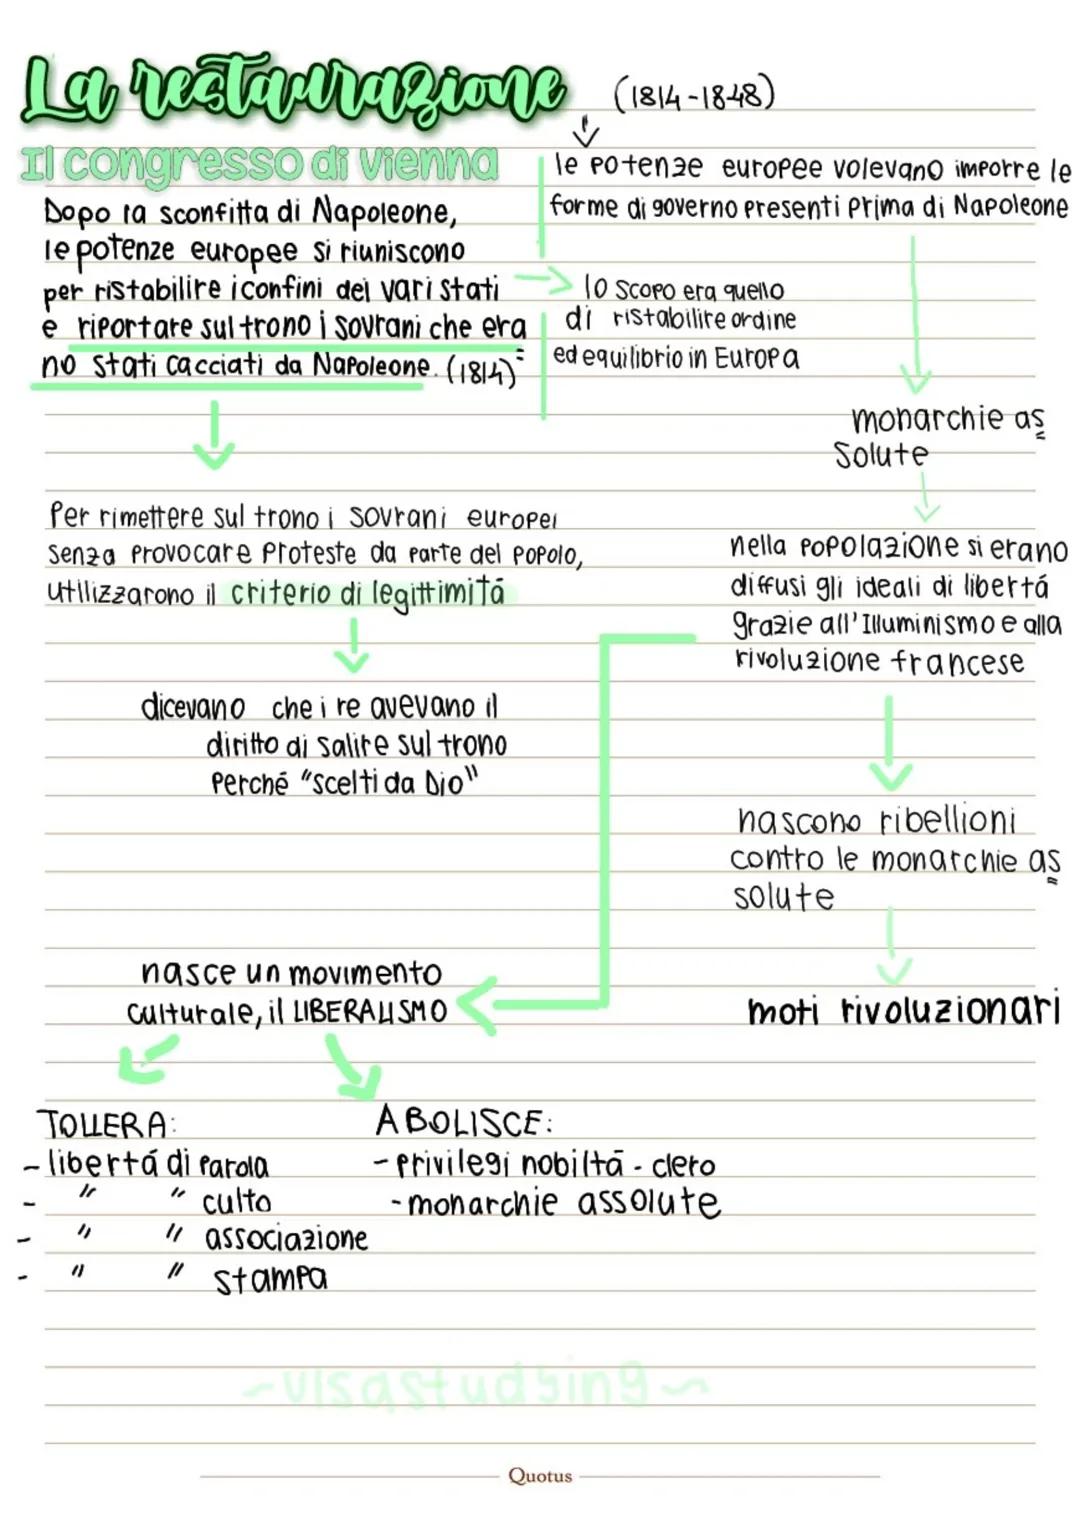 La restaurazione (1814-1848)
Il congresso di Vienna
le potenze europee volevano imporre le
forme di governo presenti prima di Napoleone
Dopo la sconfitta di Napoleone,
le potenze europee si riuniscono
per ristabilire i confini dei vari stati
e riportare sul trono i sovrani che era
no stati cacciati da Napoleone. (1814)
lo scopo era quello
di ristabilire ordine
ed equilibrio in Europa
monarchie as
solute
Per rimettere sul trono i sovrani europei
senza provocare proteste da parte del popolo,
utilizzarono il criterio di legittimitá
dicevano che i re avevano il
diritto di salire sul trono
perché "scelti da Dio"
nella popolazione si erano
diffusi gli ideali di libertá
grazie all'Illuminismo e alla
rivoluzione francese
nascono ribellioni
contro le monarchie as
solute
moti rivoluzionari
nasce un movimento
culturale, il LIBERALISMO
TOLLERA:
- libertá di parola
- " " culto
- " " associazione
- " " stampa
ABOLISCE:
- privilegi nobiltá - clero
- monarchie assolute
~visastudying~
Quotus